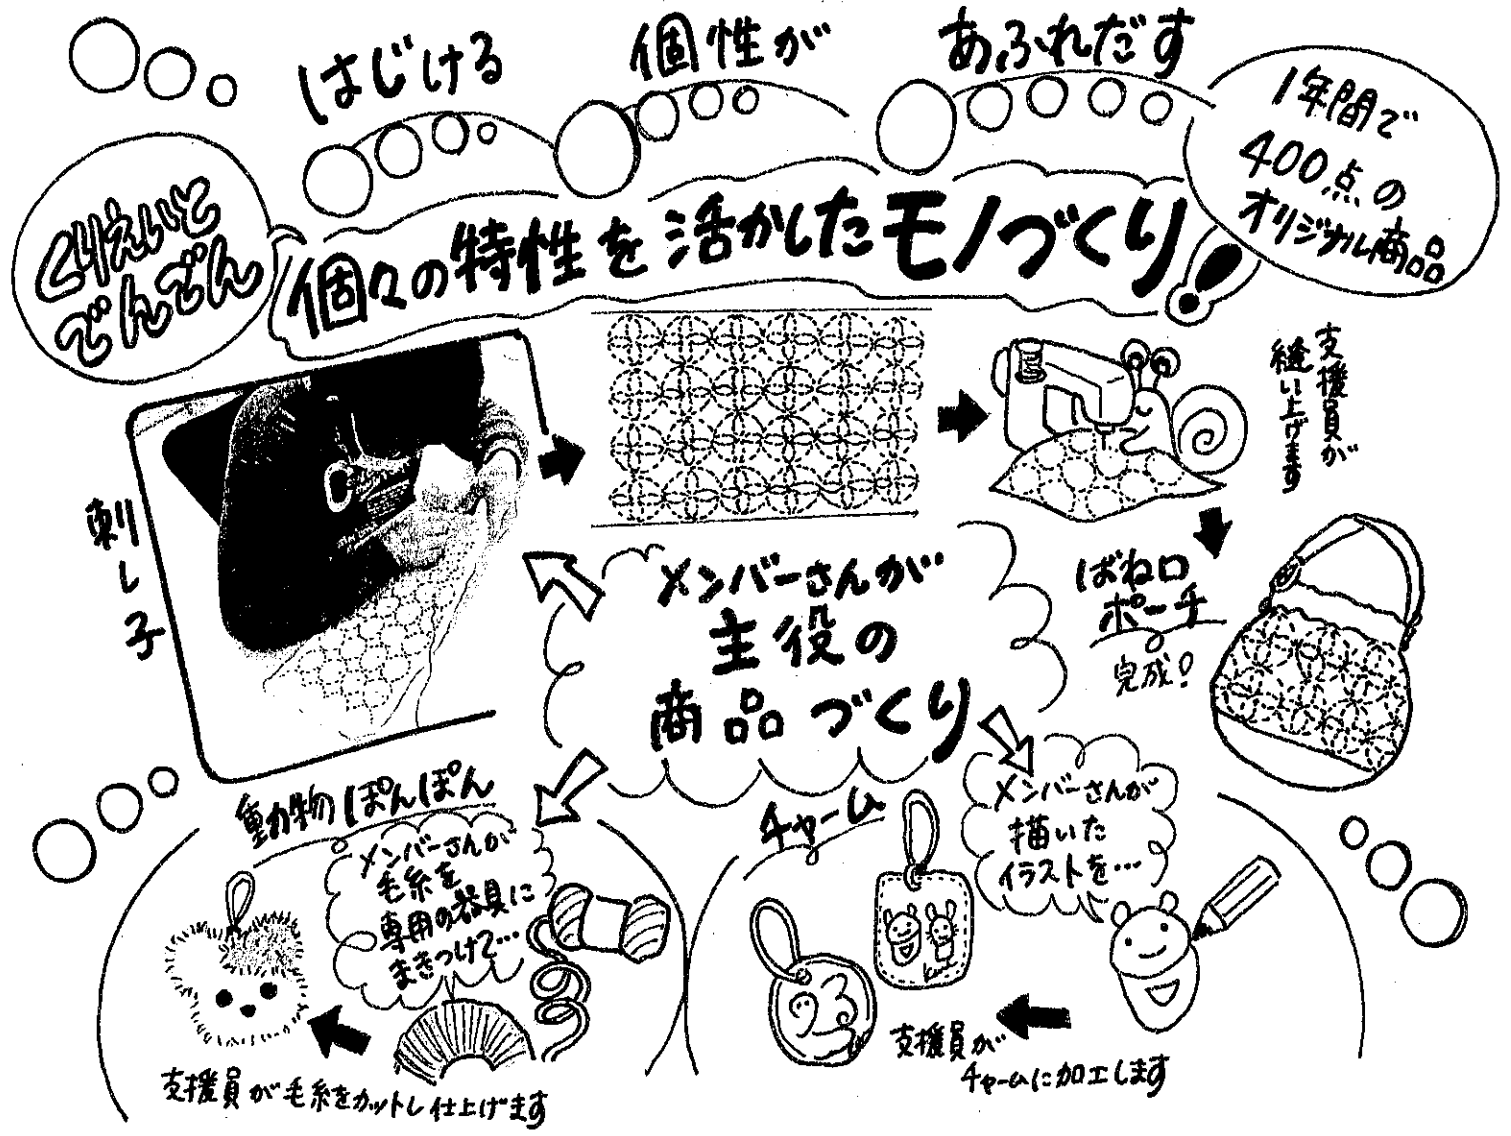 はじける
個性が
あふれだす
1年間で
400点の
オリジナル商品
くりえいと
でんでん
個々の特性を活かしたモノづくり!
刺し子
支援員が
縫い上げます
ばね口
ポーチ
完成!
メンバーさんが
主役の
商品づくり
動物ぽんぽん
メンバーさんが
毛糸を
専用の器具に
まきつけて…
支援員が毛糸をカットし仕上げます
チャーム
メンバーさんが
描いた
イラストを…
支援員が
チャームに加工します